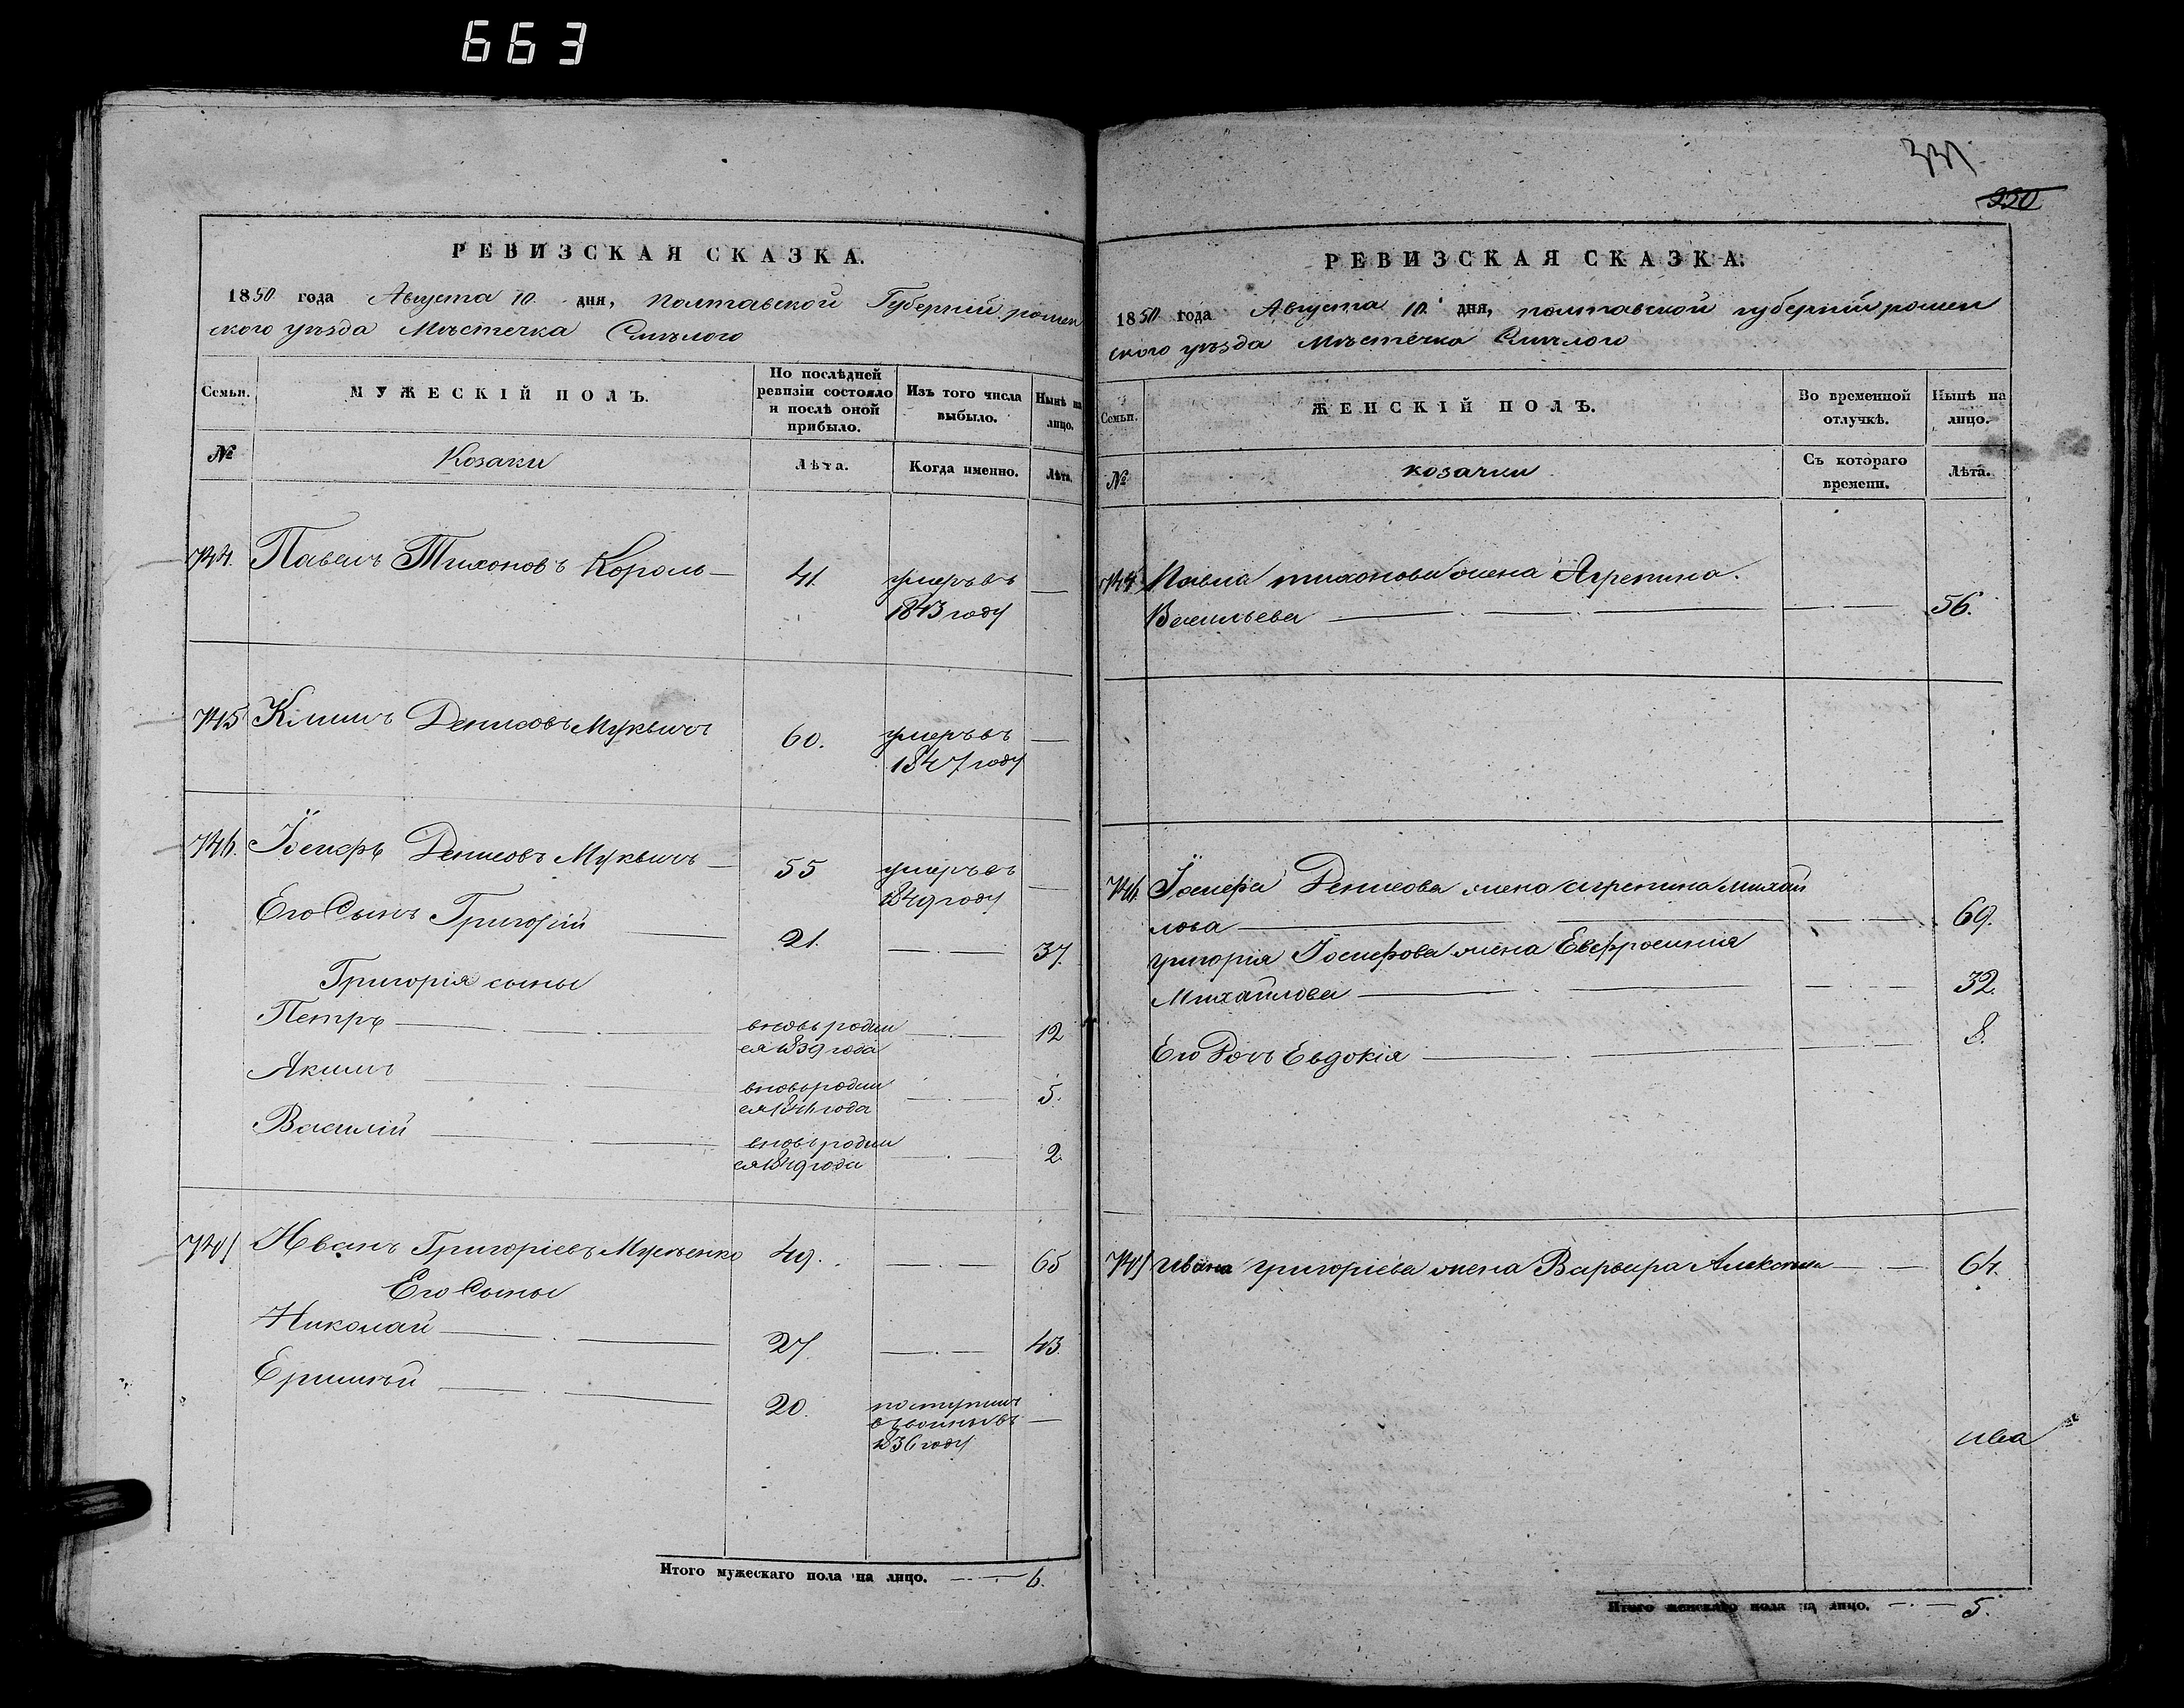 663
РЕВИЗСКАЯ СКАЗКА.
1850 года Августа 10 дня, Полтавской Губерніи ромен
ского уѣзда Мѣстечка Смѣлого
Семьи.
МУЖЕСКІЙ ПОЛЪ.
По послѣдней ревизіи состояло и послѣ оной прибыло.
Изъ того числа выбыло.
Нынѣ на лицо.
№
Козаки
Лѣта.
Когда именно.
Лѣта.
744. Павелъ Тихоновъ Король — 41. умеръ въ —
1843 году
745 Климъ Денисовъ 60. умеръ въ —
1847 году
746. Іосифъ Денисовъ 55 умеръ въ —
1849 году
Его Сынъ Григорій — 21. — 37.
Григорія сыны
Петръ — вновь родил — 12
ся 1839 года
Якимъ — вновь родил — 5.
ся 1846 года
Василій — вновь родил — 2.
ся 1849 года
747 Иванъ Григоріевъ 49. — 65
Его Сыны
Николай — 27. — 43.
Еримѣй — 20. поступилъ —
въ 1836 году
Итого мужескаго пола на лицо. — 6.
331
950
РЕВИЗСКАЯ СКАЗКА.
1850 года Августа 10 дня, полтавской губерніи ромен
ского уѣзда Мѣстечка Смѣлого
Семьи.
ЖЕНСКІЙ ПОЛЪ.
Во временной отлучкѣ.
Нынѣ на лицо.
№
козачки
Съ котораго времени.
Лѣта.
744 Павла тихонова жена Агрепина.
Васильева — — 56.
746. Іосифа Денисова жена агрепина михаи
лова — — 69.
григорія Іосифова жена Евфросинія
Михайлова — — 32.
Его Дочь Евдокія — — 8.
747 Ивана григоріева жена Варвара — 64.
ива
Итого женскаго пола на лицо. — 5.